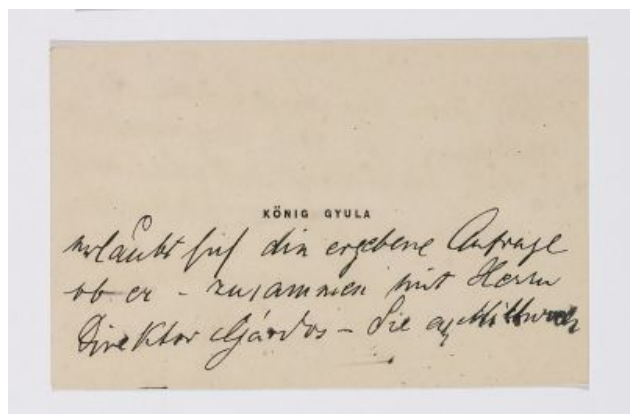 KÖNIG GYULA
erlaubt sich die ergebene Anfrage
ob er – zusammen mit Herrn
Direktor Gárdos – Sie am Mittwoch